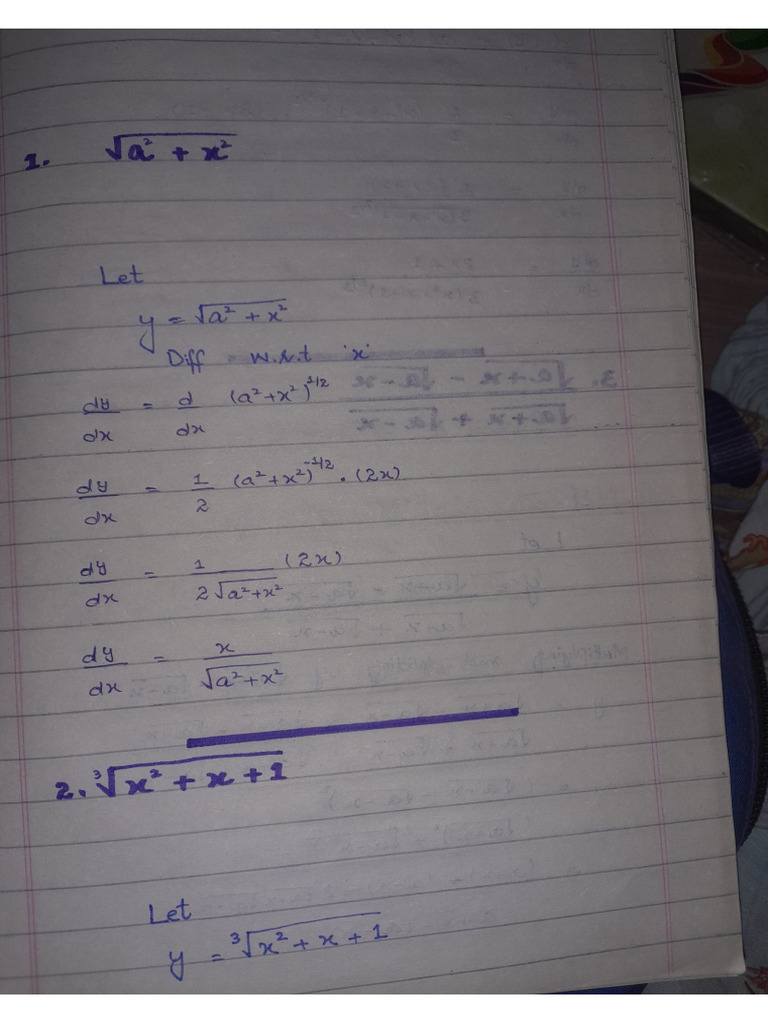 1. √(a² + x²)
Let
y = √(a² + x²)
Diff w.r.t 'x'
dy/dx = d/dx (a² + x²)^1/2
dy/dx = 1/2 (a² + x²)^-1/2 . (2x)
dy/dx = 1/(2√(a² + x²)) (2x)
dy/dx = x/√(a² + x²)
2. ³√(x² + x + 1)
Let
y = ³√(x² + x + 1)